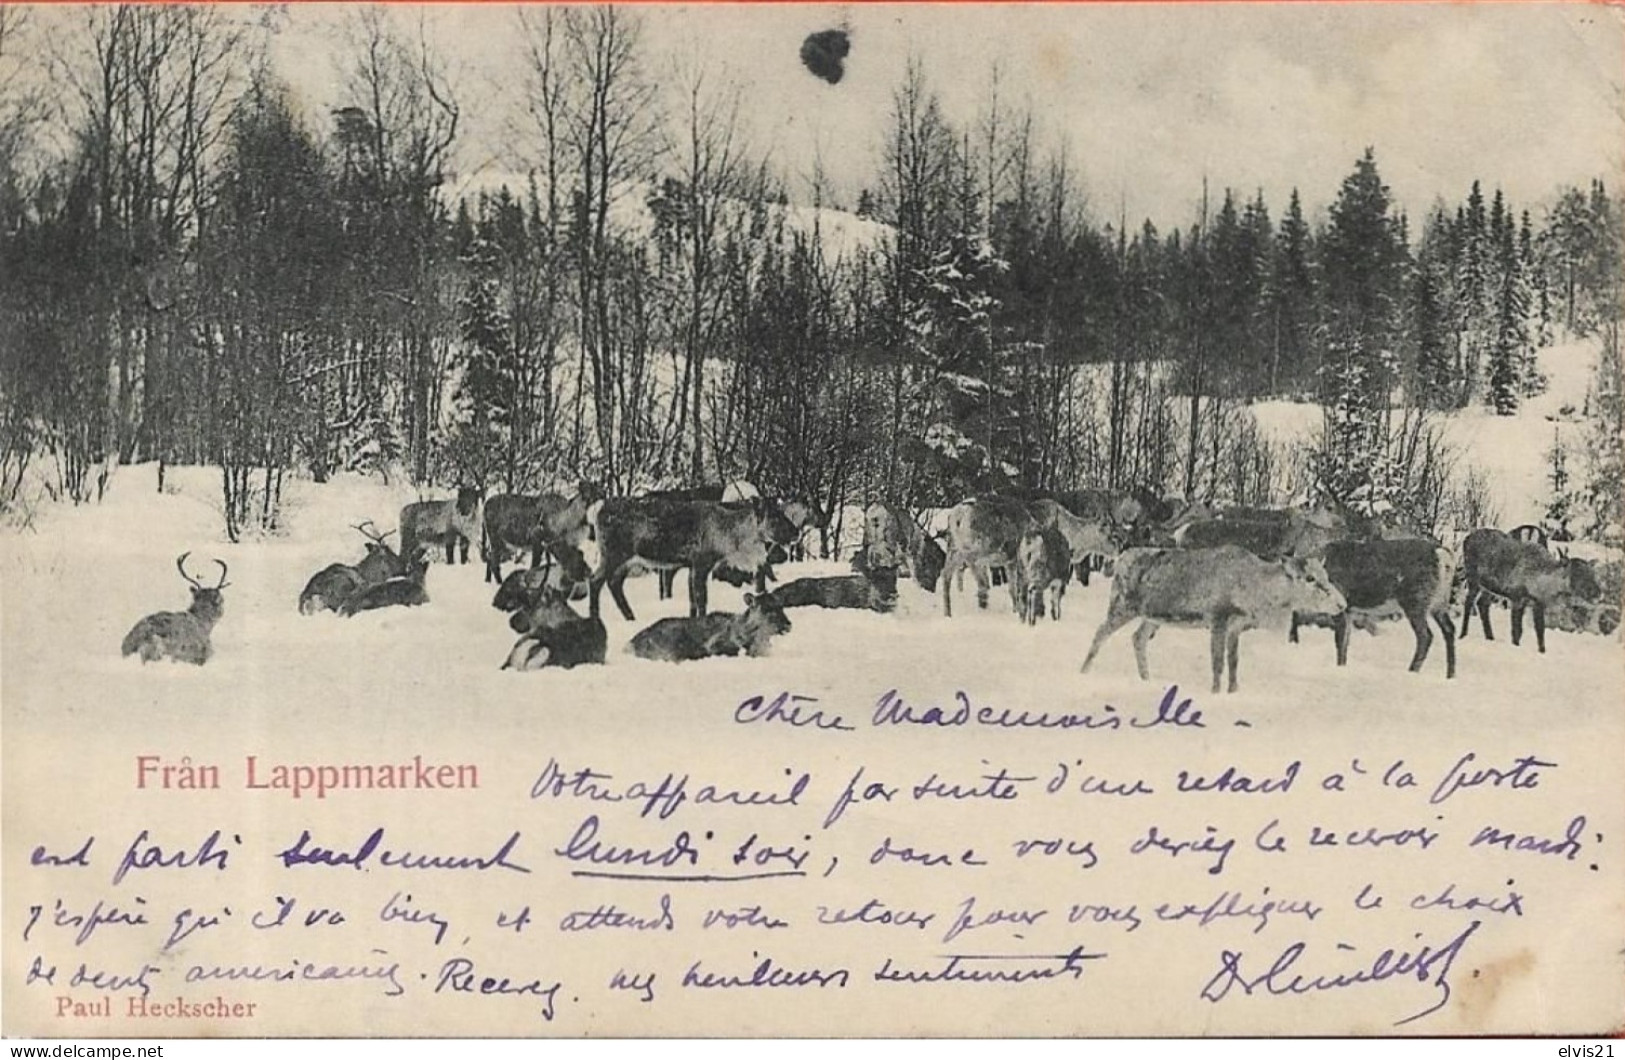 Chère Mademoiselle -
Från Lappmarken
Votre appareil par suite d'un retard à la poste
est parti seulement lundi soir, donc vous deviez le recevoir mardi.
J'espère qu'il va bien, et attends votre retour pour vous expliquer le choix
de dents américaines. Recevez mes meilleurs sentiments
Paul Heckscher
delcampe.net
elvis21